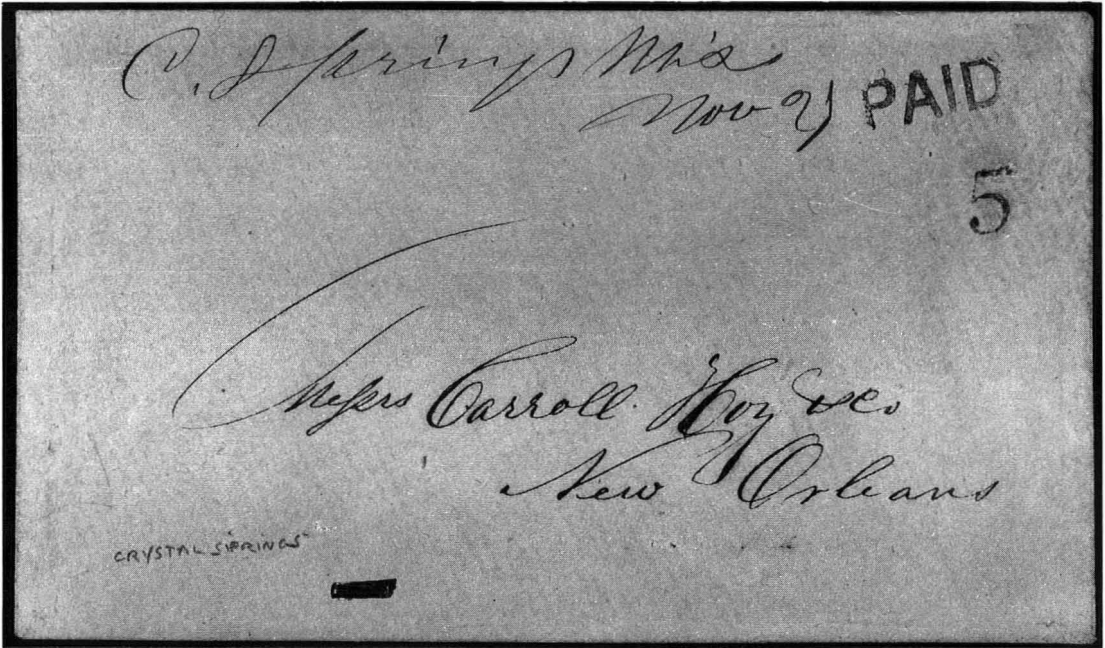 C. Springs Mis
Nov 21 PAID
5
Messrs Carroll Hoy & Co
New Orleans
CRYSTAL SPRINGS